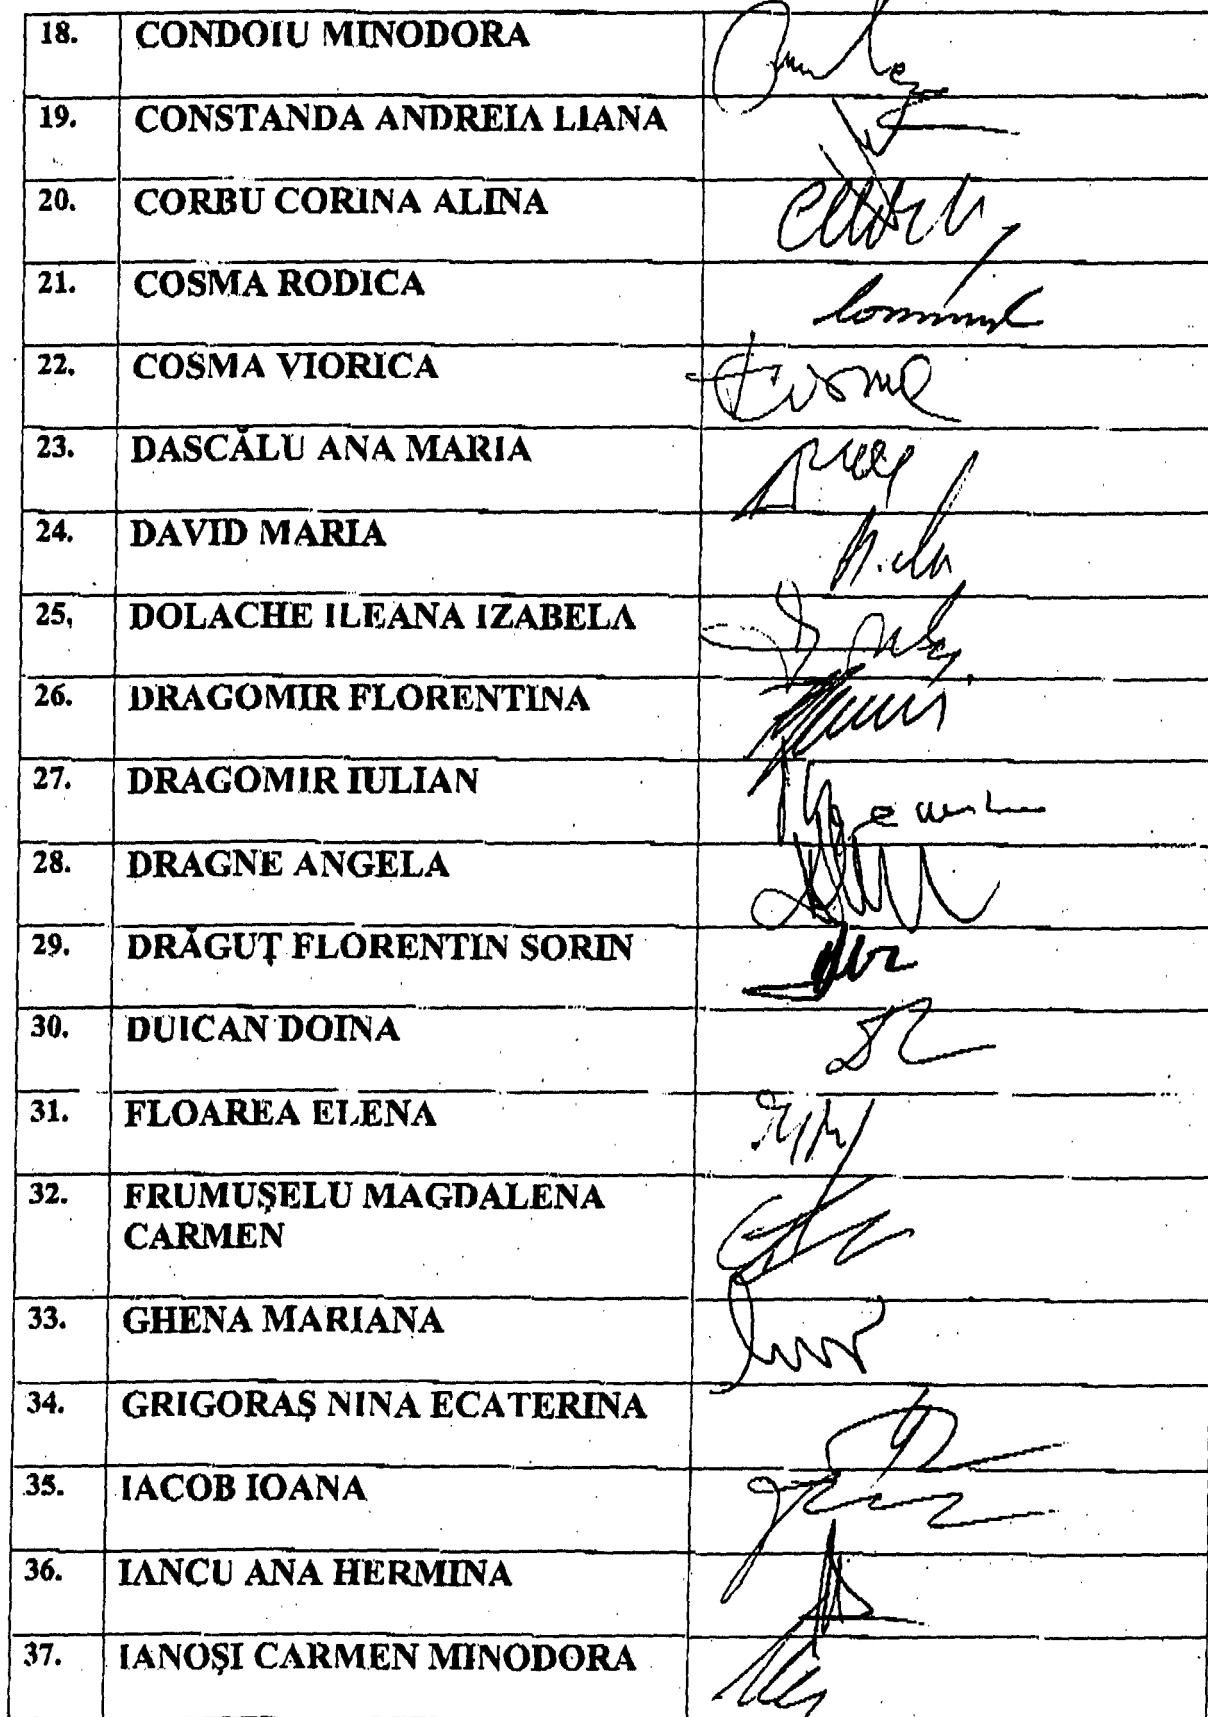 18. CONDOIU MINODORA
19. CONSTANDA ANDREIA LIANA
20. CORBU CORINA ALINA
21. COSMA RODICA
22. COSMA VIORICA
23. DASCĂLU ANA MARIA
24. DAVID MARIA
25. DOLACHE ILEANA IZABELA
26. DRAGOMIR FLORENTINA
27. DRAGOMIR IULIAN
28. DRAGNE ANGELA
29. DRĂGUŢ FLORENTIN SORIN
30. DUICAN DOINA
31. FLOAREA ELENA
32. FRUMUŞELU MAGDALENA
CARMEN
33. GHENA MARIANA
34. GRIGORAŞ NINA ECATERINA
35. IACOB IOANA
36. IANCU ANA HERMINA
37. IANOŞI CARMEN MINODORA